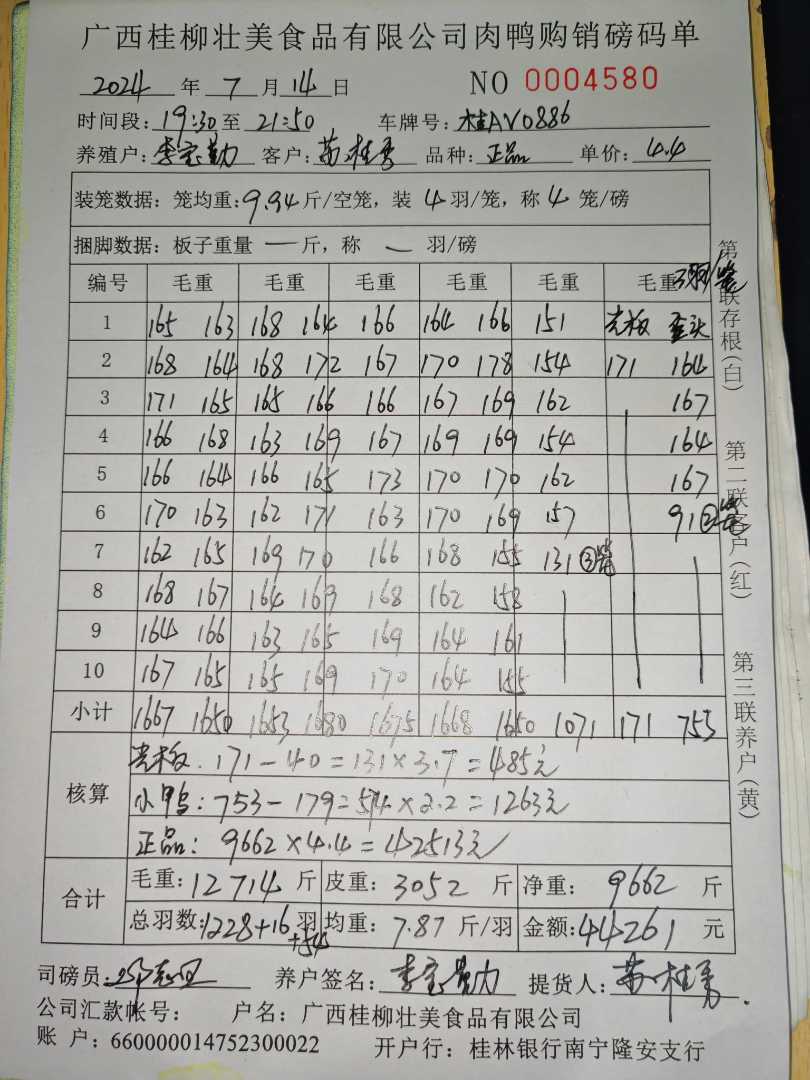 广西桂柳壮美食品有限公司肉鸭购销磅码单
2024 年 7 月 14 日 NO 0004580
时间段: 19:30 至 21:50 车牌号: 桂AV0886
养殖户: 李宝勤 客户: 苏桂秀 品种: 正品 单价: 4.4
装笼数据: 笼均重: 9.94 斤/空笼, 装 4 羽/笼, 称 4 笼/磅
捆脚数据: 板子重量 — 斤, 称 — 羽/磅
编号 毛重 毛重 毛重 毛重 毛重 毛重
1 165 163 168 164 166 164 166 151 壳板 歪头
2 168 164 168 172 167 170 178 154 171 164
3 171 165 165 166 166 167 169 162 167
4 166 168 163 169 167 169 169 154 164
5 166 164 166 165 173 170 170 162 167
6 170 163 162 171 163 170 169 157 91 ②笼
7 162 165 169 170 166 168 155 131 ③笼
8 168 167 164 169 168 162 158
9 164 166 163 165 169 164 161
10 167 165 165 169 170 164 155
小计 1667 1650 1653 1680 1675 1668 1650 1071 171 753
核算
壳板: 171-40=131×3.7=485元
小鸭: 753-179=574×2.2=1263元
正品: 9662×4.4=42513元
合计 毛重: 12714 斤 皮重: 3052 斤 净重: 9662 斤
总羽数: 1228+16 羽 +54 均重: 7.87 斤/羽 金额: 44261 元
司磅员: 养户签名: 李宝勤 提货人: 苏桂秀
公司汇款帐号: 户名: 广西桂柳壮美食品有限公司
账 户: 660000014752300022 开户行: 桂林银行南宁隆安支行
第一联存根(白) 第二联客户(红) 第三联养户(黄)